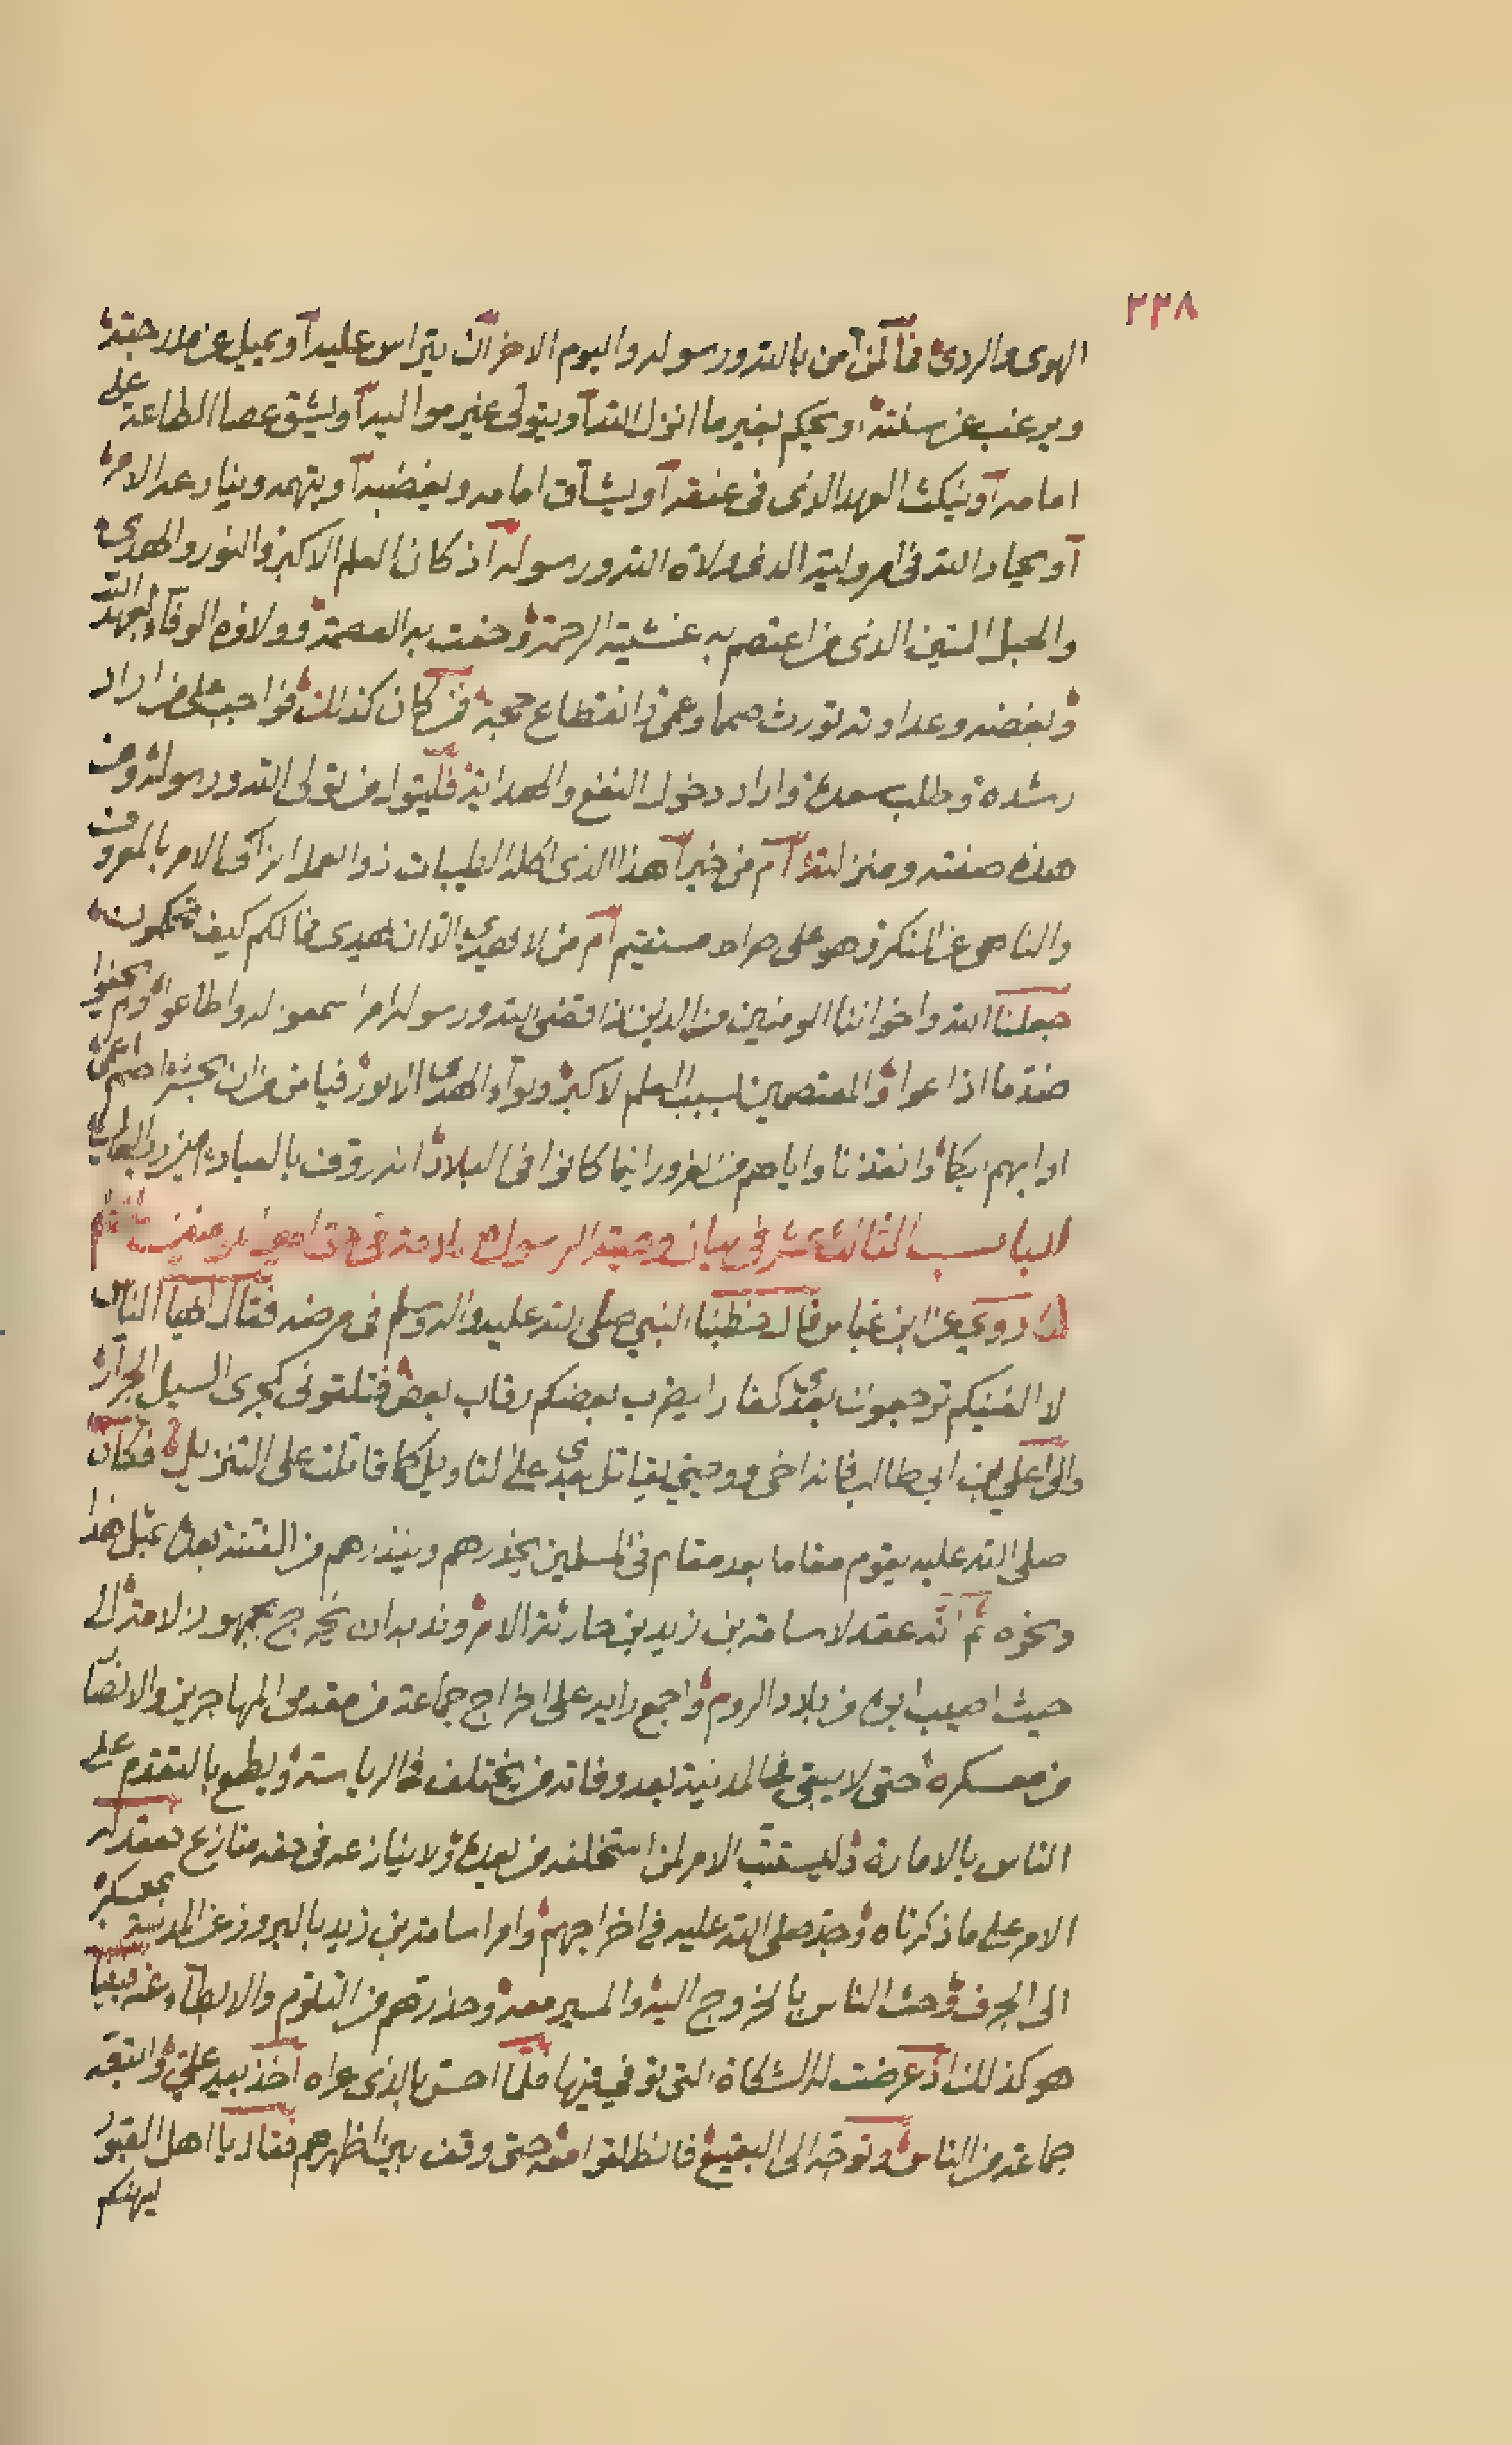 ٢٣٨
الهوى والردى فما لمن آمن بالله ورسوله واليوم الاخر ان يتراس عليه او يميل عن
ويرغب عن سنته او يحكم بغير ما انزل الله او يتولى غير مواليه او يشق عصا الطاعة على
امامه او ينكث العهد الذى فى عنقه او يشاق امامه ويغضبه او يتهمه وينازعه الامر
او يحاد الله فى امر وليه الذى ولاه الله ورسوله اذ كان العلم الاكبر والنور والهدى
والحبل المتين الذى من اعتصم به غشيته الرحمة وحفت به العصمة وولاؤه الوفاء بعهد الله
وبغضه وعداوته تورث صما وعمى وانقطاع حجة فمن كان كذلك فواجب على من اراد
رشده وطلب سعده واراد دخول النفع والهداية فليتوا من تولى الله ورسوله ومن
هذه صفته ومنزلته ام من خير اهذا الذى اكله الطيبات ذو العمل الزاكى الامر بالمعروف
والناهى عن المنكر وهو على صراط مستقيم ام من لا يهدى الا ان يهدى فما لكم كيف تحكمون
جعلنا الله واخواننا المومنين من الذين اذا قضى الله ورسوله امرا سمعوا له واطاعوا ولم يخفوا
ضد ما اذاعوا والمعتصمين بسبب العلم الاكبر ولواء الهدى الانور فيا من من ان يحشر اصم اعمى
او ابهم ابكم وانقذنا واياهم من الغرور اينما كانوا فى البلاد انه رؤوف بالعباد امين رب العالمين
الباب الثالث عشر فى بيان وصية الرسول
روى عن ابن عباس قال خطبنا النبي صلى الله عليه واله وسلم فى مرضه فقال ايها الناس
لا الفينكم ترجعون بعدى كفارا يضرب بعضكم رقاب بعض فتلقونى كمجرى السيل الجرار
والى على ابن ابى طالب فانه اخى ووصيى يقاتل بعدى على التاويل كما قاتلت على التنزيل فكان
صلى الله عليه يقوم مقاما بعد مقام فى المسلمين يحذرهم وينذرهم من الفتنة بعده بمثل هذا
ونحوه ثم انه عقد لاسامة بن زيد بن حارثة الامر وندبه ان يخرج بجمهور الامة الى
حيث اصيب ابوه من بلاد الروم واجمع رايه على اخراج جماعة من مقدمى المهاجرين والانصار
من معسكره حتى لا يبقى فى المدينة بعد وفاته من يختلف فى الرياسة ويطمع بالتقدم على
الناس بالامارة وليستتب الامر لمن استخلفه من بعده ولا ينازعه فى حقه منازع فعقد له
الامر على ما ذكرناه وجد صلى الله عليه فى اخراجهم وامر اسامة بن زيد بالبروز عن المدينة بمعسكره
الى الجرف وحث الناس بالخروج اليه والمسير معه وحذرهم من التلوم والابطاء عنه فبينما
هو كذلك اذ عرضت له الشكاة التى توفى فيها فلما احس بالذى عراه اخذ بيد على واتبعه
جماعة من الناس وتوجه الى البقيع فانطلقوا معه حتى وقف بين اظهرهم فقال يا اهل القبور
ليهنكم